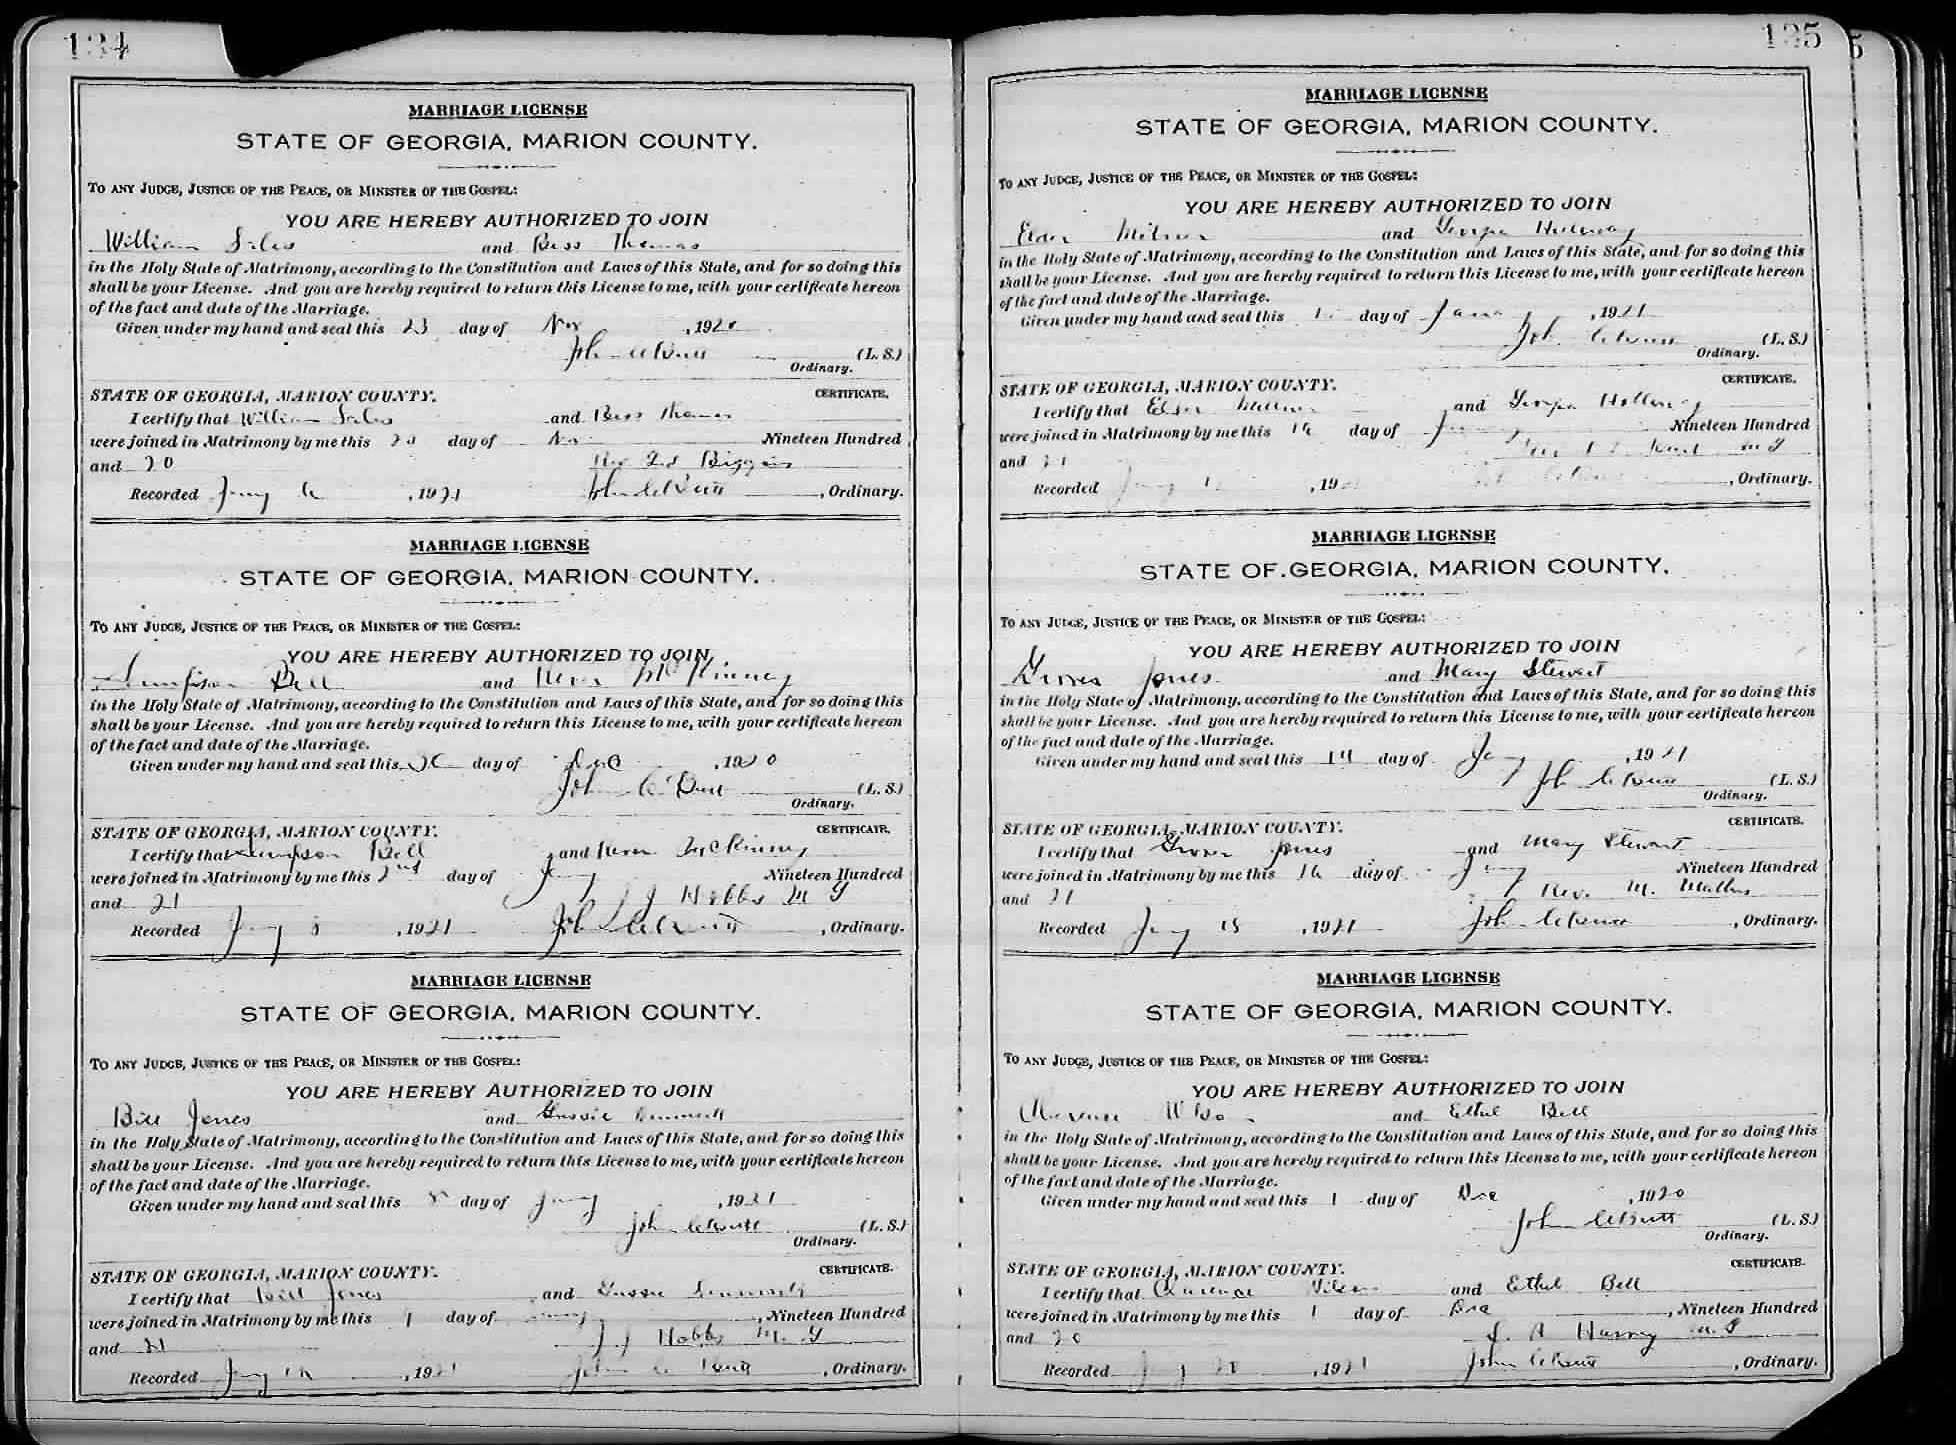 134
MARRIAGE LICENSE
STATE OF GEORGIA, MARION COUNTY.
TO ANY JUDGE, JUSTICE OF THE PEACE, OR MINISTER OF THE GOSPEL:
YOU ARE HEREBY AUTHORIZED TO JOIN
William and Bess Thomas
in the Holy State of Matrimony, according to the Constitution and Laws of this State, and for so doing this
shall be your License. And you are hereby required to return this License to me, with your certificate hereon
of the fact and date of the Marriage.
Given under my hand and seal this 23 day of Nov, 1920
John C Butt (L. S.)
Ordinary.
STATE OF GEORGIA, MARION COUNTY. CERTIFICATE.
I certify that William and Bess Thomas
were joined in Matrimony by me this day of Nov Nineteen Hundred
and 20
Rev Biggins
Recorded Jany 6, 1921 John C Butt, Ordinary.
MARRIAGE LICENSE
STATE OF GEORGIA, MARION COUNTY.
TO ANY JUDGE, JUSTICE OF THE PEACE, OR MINISTER OF THE GOSPEL:
YOU ARE HEREBY AUTHORIZED TO JOIN
Bell and McKinney
in the Holy State of Matrimony, according to the Constitution and Laws of this State, and for so doing this
shall be your License. And you are hereby required to return this License to me, with your certificate hereon
of the fact and date of the Marriage.
Given under my hand and seal this day of Dec, 1920
John C Butt (L. S.)
Ordinary.
STATE OF GEORGIA, MARION COUNTY. CERTIFICATE.
I certify that Bell and McKinney
were joined in Matrimony by me this 2nd day of Jany Nineteen Hundred
and 21 J J Hobbs M G
Recorded Jany, 1921 John C Butt, Ordinary.
MARRIAGE LICENSE
STATE OF GEORGIA, MARION COUNTY.
TO ANY JUDGE, JUSTICE OF THE PEACE, OR MINISTER OF THE GOSPEL:
YOU ARE HEREBY AUTHORIZED TO JOIN
Bill Jones and Gussie
in the Holy State of Matrimony, according to the Constitution and Laws of this State, and for so doing this
shall be your License. And you are hereby required to return this License to me, with your certificate hereon
of the fact and date of the Marriage.
Given under my hand and seal this 8 day of Jany, 1921
John C Butt (L. S.)
Ordinary.
STATE OF GEORGIA, MARION COUNTY. CERTIFICATE.
I certify that Jones and Gussie
were joined in Matrimony by me this 9 day of Jany, Nineteen Hundred
and 21 J J Hobbs M. G
Recorded Jany, 1921 John C Butt, Ordinary.
135
MARRIAGE LICENSE
STATE OF GEORGIA, MARION COUNTY.
TO ANY JUDGE, JUSTICE OF THE PEACE, OR MINISTER OF THE GOSPEL:
YOU ARE HEREBY AUTHORIZED TO JOIN
Elder Milner and Georgia Holloway
in the Holy State of Matrimony, according to the Constitution and Laws of this State, and for so doing this
shall be your License. And you are hereby required to return this License to me, with your certificate hereon
of the fact and date of the Marriage.
Given under my hand and seal this day of, 1921
John C Butt (L. S.)
Ordinary.
STATE OF GEORGIA, MARION COUNTY. CERTIFICATE.
I certify that Elder and Georgia Holloway
were joined in Matrimony by me this day of Nineteen Hundred
and 21 M G
Recorded Jany, 19, Ordinary.
MARRIAGE LICENSE
STATE OF GEORGIA, MARION COUNTY.
TO ANY JUDGE, JUSTICE OF THE PEACE, OR MINISTER OF THE GOSPEL:
YOU ARE HEREBY AUTHORIZED TO JOIN
Grover Jones and Mary Stewart
in the Holy State of Matrimony, according to the Constitution and Laws of this State, and for so doing this
shall be your License. And you are hereby required to return this License to me, with your certificate hereon
of the fact and date of the Marriage.
Given under my hand and seal this 14 day of Jany, 1921
John C Butt (L. S.)
Ordinary.
STATE OF GEORGIA, MARION COUNTY. CERTIFICATE.
I certify that Grover Jones and Mary Stewart
were joined in Matrimony by me this 16 day of Jany Nineteen Hundred
and 21 Rev. M.
Recorded Jany 18, 1921 John C Butt, Ordinary.
MARRIAGE LICENSE
STATE OF GEORGIA, MARION COUNTY.
TO ANY JUDGE, JUSTICE OF THE PEACE, OR MINISTER OF THE GOSPEL:
YOU ARE HEREBY AUTHORIZED TO JOIN
Clarence and Ethel Bell
in the Holy State of Matrimony, according to the Constitution and Laws of this State, and for so doing this
shall be your License. And you are hereby required to return this License to me, with your certificate hereon
of the fact and date of the Marriage.
Given under my hand and seal this 1 day of Dec, 1920
John C Butt (L. S.)
Ordinary.
STATE OF GEORGIA, MARION COUNTY. CERTIFICATE.
I certify that Clarence Wilson and Ethel Bell
were joined in Matrimony by me this 1 day of Dec, Nineteen Hundred
and 20 Harvey
Recorded Jany, 1921 John C Butt, Ordinary.